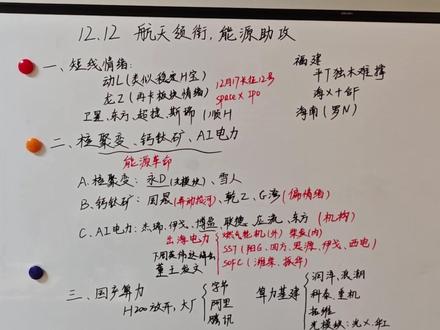 12.12 航天领衔，能源助攻
一、短线情绪：
动L（类似稳度H宝）
龙Z（再卡板块情绪）
卫星、东方、超捷、斯瑞（顺H
12月17长征12号
spacex Ipo
福建
平T独木难撑
海X十6F
海南（罗N）
二、核聚变、钙钛矿、AI电力
能源革命
A.核聚变：永D（光模块）、雪人
B.钙钛矿：国晟（异动拉河）、乾Z、G湾（偏情绪）
C.AI电力：杰瑞、伊戈、博盈、联德、应流、东方（机构）
出海电力
燃气轮机（外）柴发（内）
SST（阳G、四方、思源、伊戈、西电）
SOFC（潍柴、振华）
三、国产算力
H200放开，大厂
字节
阿里
腾讯
算力基建
润泽、浪潮
科泰、重机
拓维
光模块：光X、华工